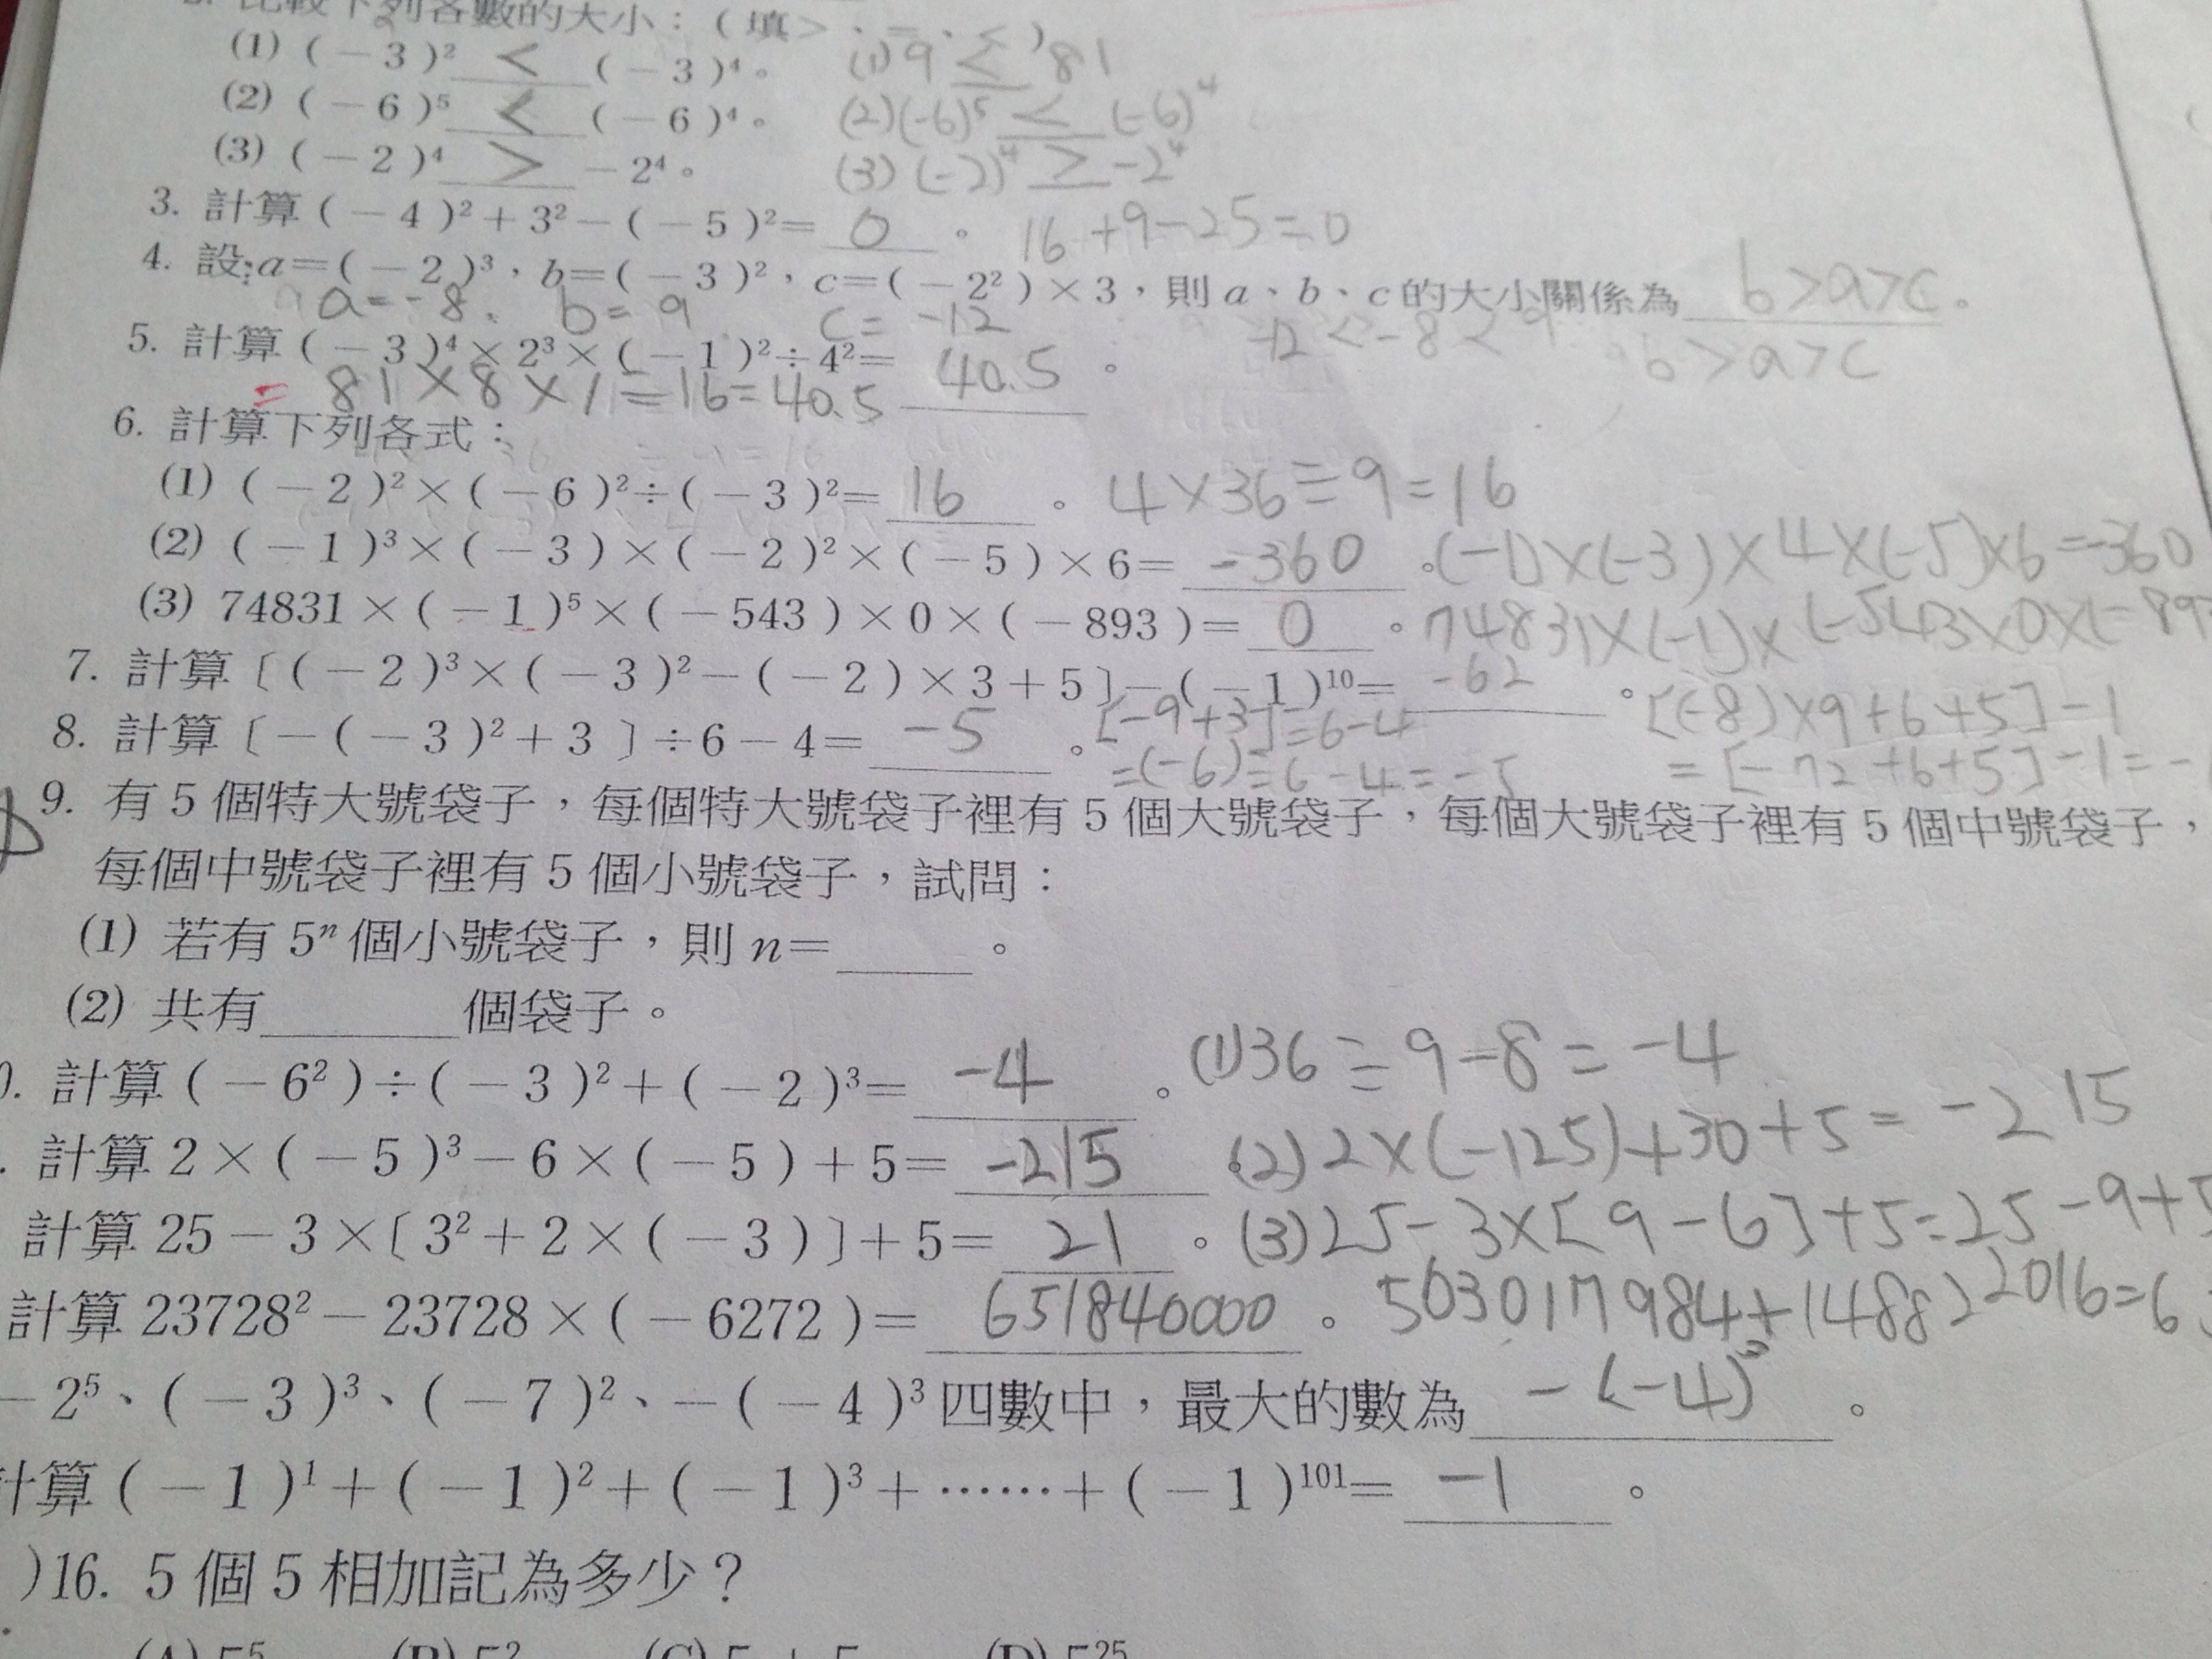 比較下列各數的大小：（填＞、＝、＜）
(1) (－3)² < (－3)⁴。 (1) 9 < 81
(2) (－6)⁵ < (－6)⁴。 (2) (-6)⁵ < (-6)⁴
(3) (－2)⁴ > －2⁴。 (3) (-2)⁴ > -2⁴
3. 計算 (－4)²＋3²－(－5)²＝ 0 。 16+9-25=0
4. 設:a＝(－2)³，b＝(－3)²，c＝(－2²)×3，則 a、b、c 的大小關係為 b>a>c 。
a=-8 b=9 c=-12 -12<-8<9 b>a>c
5. 計算 (－3)⁴×2³×(－1)²÷4²＝ 40.5 。
= 81×8×1÷16=40.5
6. 計算下列各式：
(1) (－2)²×(－6)²÷(－3)²＝ 16 。 4×36÷9=16
(2) (－1)³×(－3)×(－2)²×(－5)×6＝ -360 。 (-1)×(-3)×4×(-5)×6=-360
(3) 74831×(－1)⁵×(－543)×0×(－893)＝ 0 。 74831×(-1)×(-543×0×(-89
7. 計算〔(－2)³×(－3)²－(－2)×3＋5〕－(－1)¹⁰＝ -62 。 [(-8)×9+6+5]-1
8. 計算〔－(－3)²＋3〕÷6－4＝ -5 。 [-9+3]÷6-4 = [-72+6+5]-1=-
=(-6)÷6-4=-5
9. 有 5 個特大號袋子，每個特大號袋子裡有 5 個大號袋子，每個大號袋子裡有 5 個中號袋子，
每個中號袋子裡有 5 個小號袋子，試問：
(1) 若有 5ⁿ 個小號袋子，則 n＝ 。
(2) 共有 個袋子。
0. 計算 (－6²)÷(－3)²＋(－2)³＝ -4 。 (1) 36÷9-8=-4
. 計算 2×(－5)³－6×(－5)＋5＝ -215 。 (2) 2×(-125)+30+5=-215
計算 25－3×〔3²＋2×(－3)〕＋5＝ 21 。 (3) 25-3×[9-6]+5=25-9+5
計算 23728²－23728×(－6272)＝ 651840000 。 563017984+148822016=6
－2⁵、(－3)³、(－7)²、－(－4)³ 四數中，最大的數為 -(-4)³ 。
計算 (－1)¹＋(－1)²＋(－1)³＋……＋(－1)¹⁰¹＝ -1 。
)16. 5 個 5 相加記為多少？
(A) 5⁵ (B) 5² (C) 5＋5 (D) 5²⁵